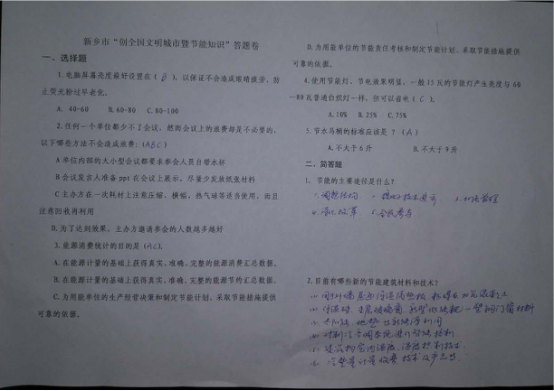 新乡市“创全国文明城市暨节能知识”答题卷
一、选择题
1.电脑屏幕亮度最好设置在( B ),以保证不会造成眼睛疲劳,防
止荧光粉过早老化。
A. 40-60 B.60-80 C.80-100
2.任何一个单位都少不了会议,然而会议上的浪费却是不必要的,
以下哪些方法不会造成浪费:(ABC)
A 单位内部的大小型会议都要求参会人员自带水杯
B 会议发言人准备 ppt 在会议上展示,尽量少发放纸张材料
C 主办方在一次耗材上注意压缩,横幅、热气球等适当使用,而且
注意回收再利用
D.为了达到效果,主办方邀请参会的人数越多越好
3.能源消费统计的目的是(AC).
A.在能源计量的基础上获得真实、准确、完整的能源消费汇总数据。
B.在能源计量的基础上获得真实、准确、完整的能源节约汇总数据。
C.为用能单位的生产经营决策和制定节能计划、采取节能措施提供
可靠的依据。
D.为用能单位的节能责任考核和制定节能计划、采取节能措施提供
可靠的依据。
4.使用节能灯,节电效果明显,一般 15 瓦的节能灯产生亮度与 60
—80 瓦普通白炽灯一样,但可以省电( C )。
A.10% B.25% C.75%
5.节水马桶的标准应该是?(A)
A.不大于 6 升 B.不大于 9 升
二、简答题
1. 节能的主要途径是什么?
1.调整结构 2.推动技术进步 3.加强管理
4.深化改革 5.全民参与
2.目前有哪些新的节能建筑材料和技术?